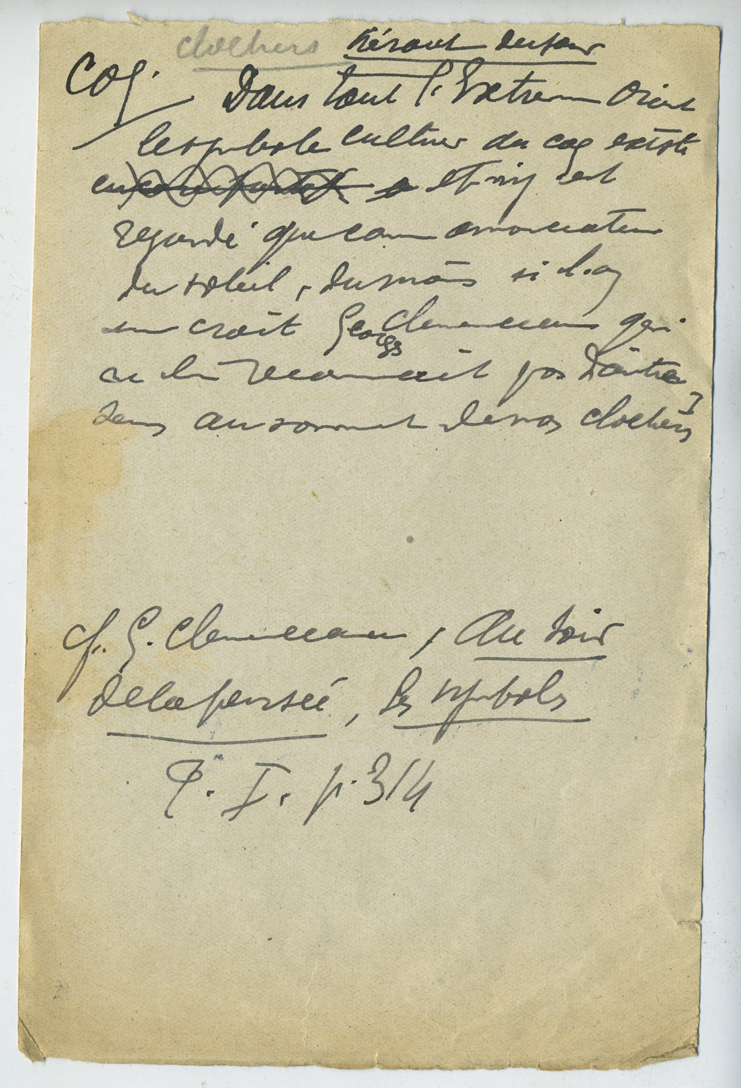 clochers héraut du jour
Coq. Dans tout l'Extreme Orient
le symbole cultuel du coq existe
et n'y est
regardé que comme annonciateur
du soleil, du moins si l'on
en croit Georges Clemenceau qui
ne lui reconnait pas d'autre
sens au sommet de nos clochers
cf. G. Clemenceau, Au Soir
de la pensée, Les symboles
T. I. p. 314